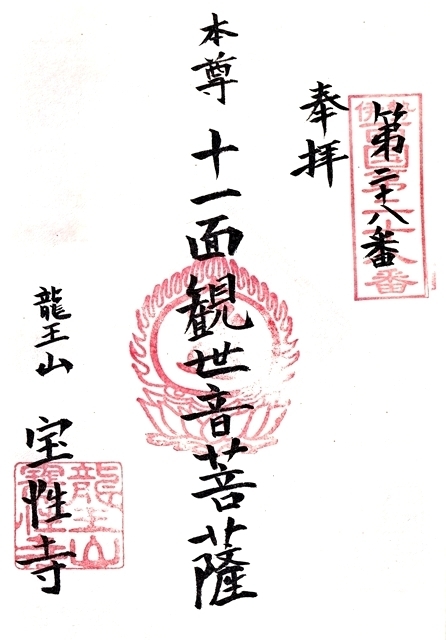 第二十八番
奉拝
本尊 十一面観世音菩薩
龍王山 宝性寺
龍王山
寶性寺